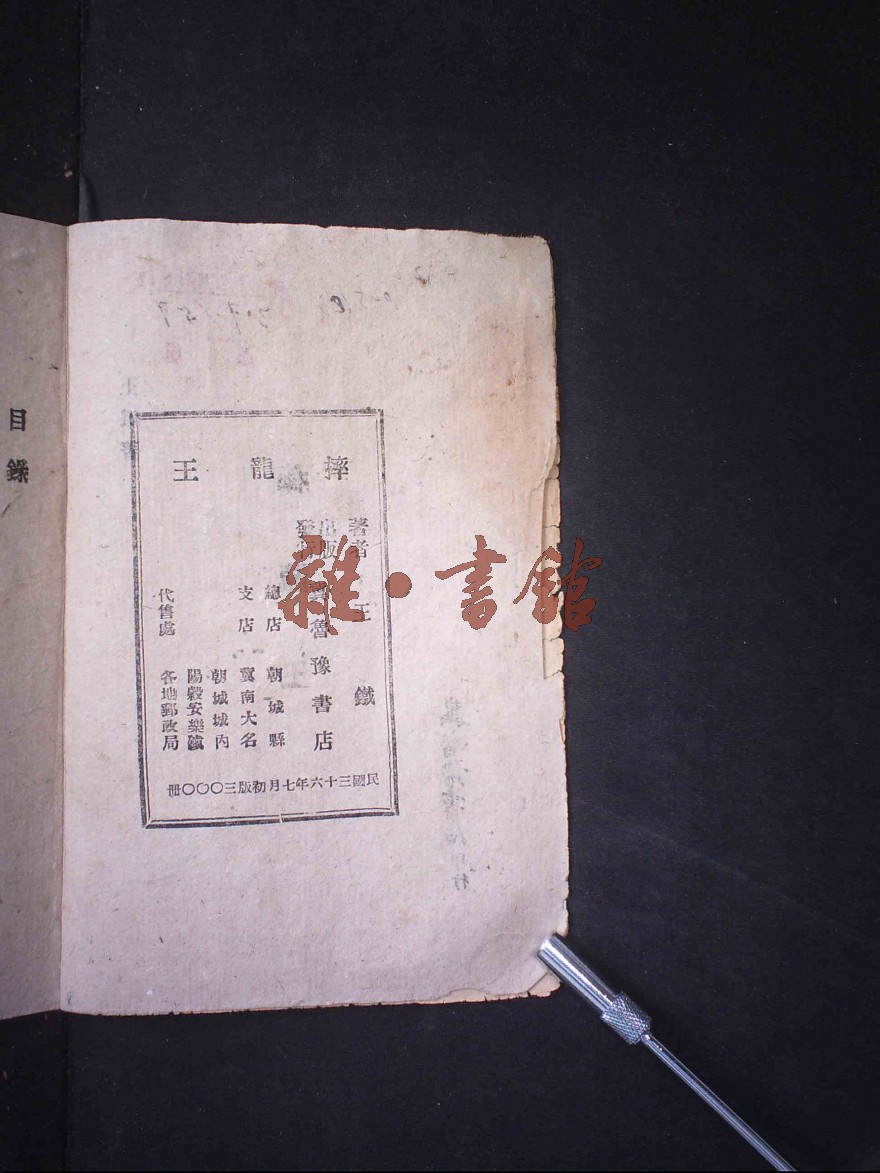 摔龍王
著者 王鐵
出版
發行
冀魯豫書店
總店 朝城縣
支店 冀南大名
朝城城內
陽穀安樂鎮
代售處 各地郵政局
民國三十六年七月初版三〇〇〇册
目錄
雜·書館